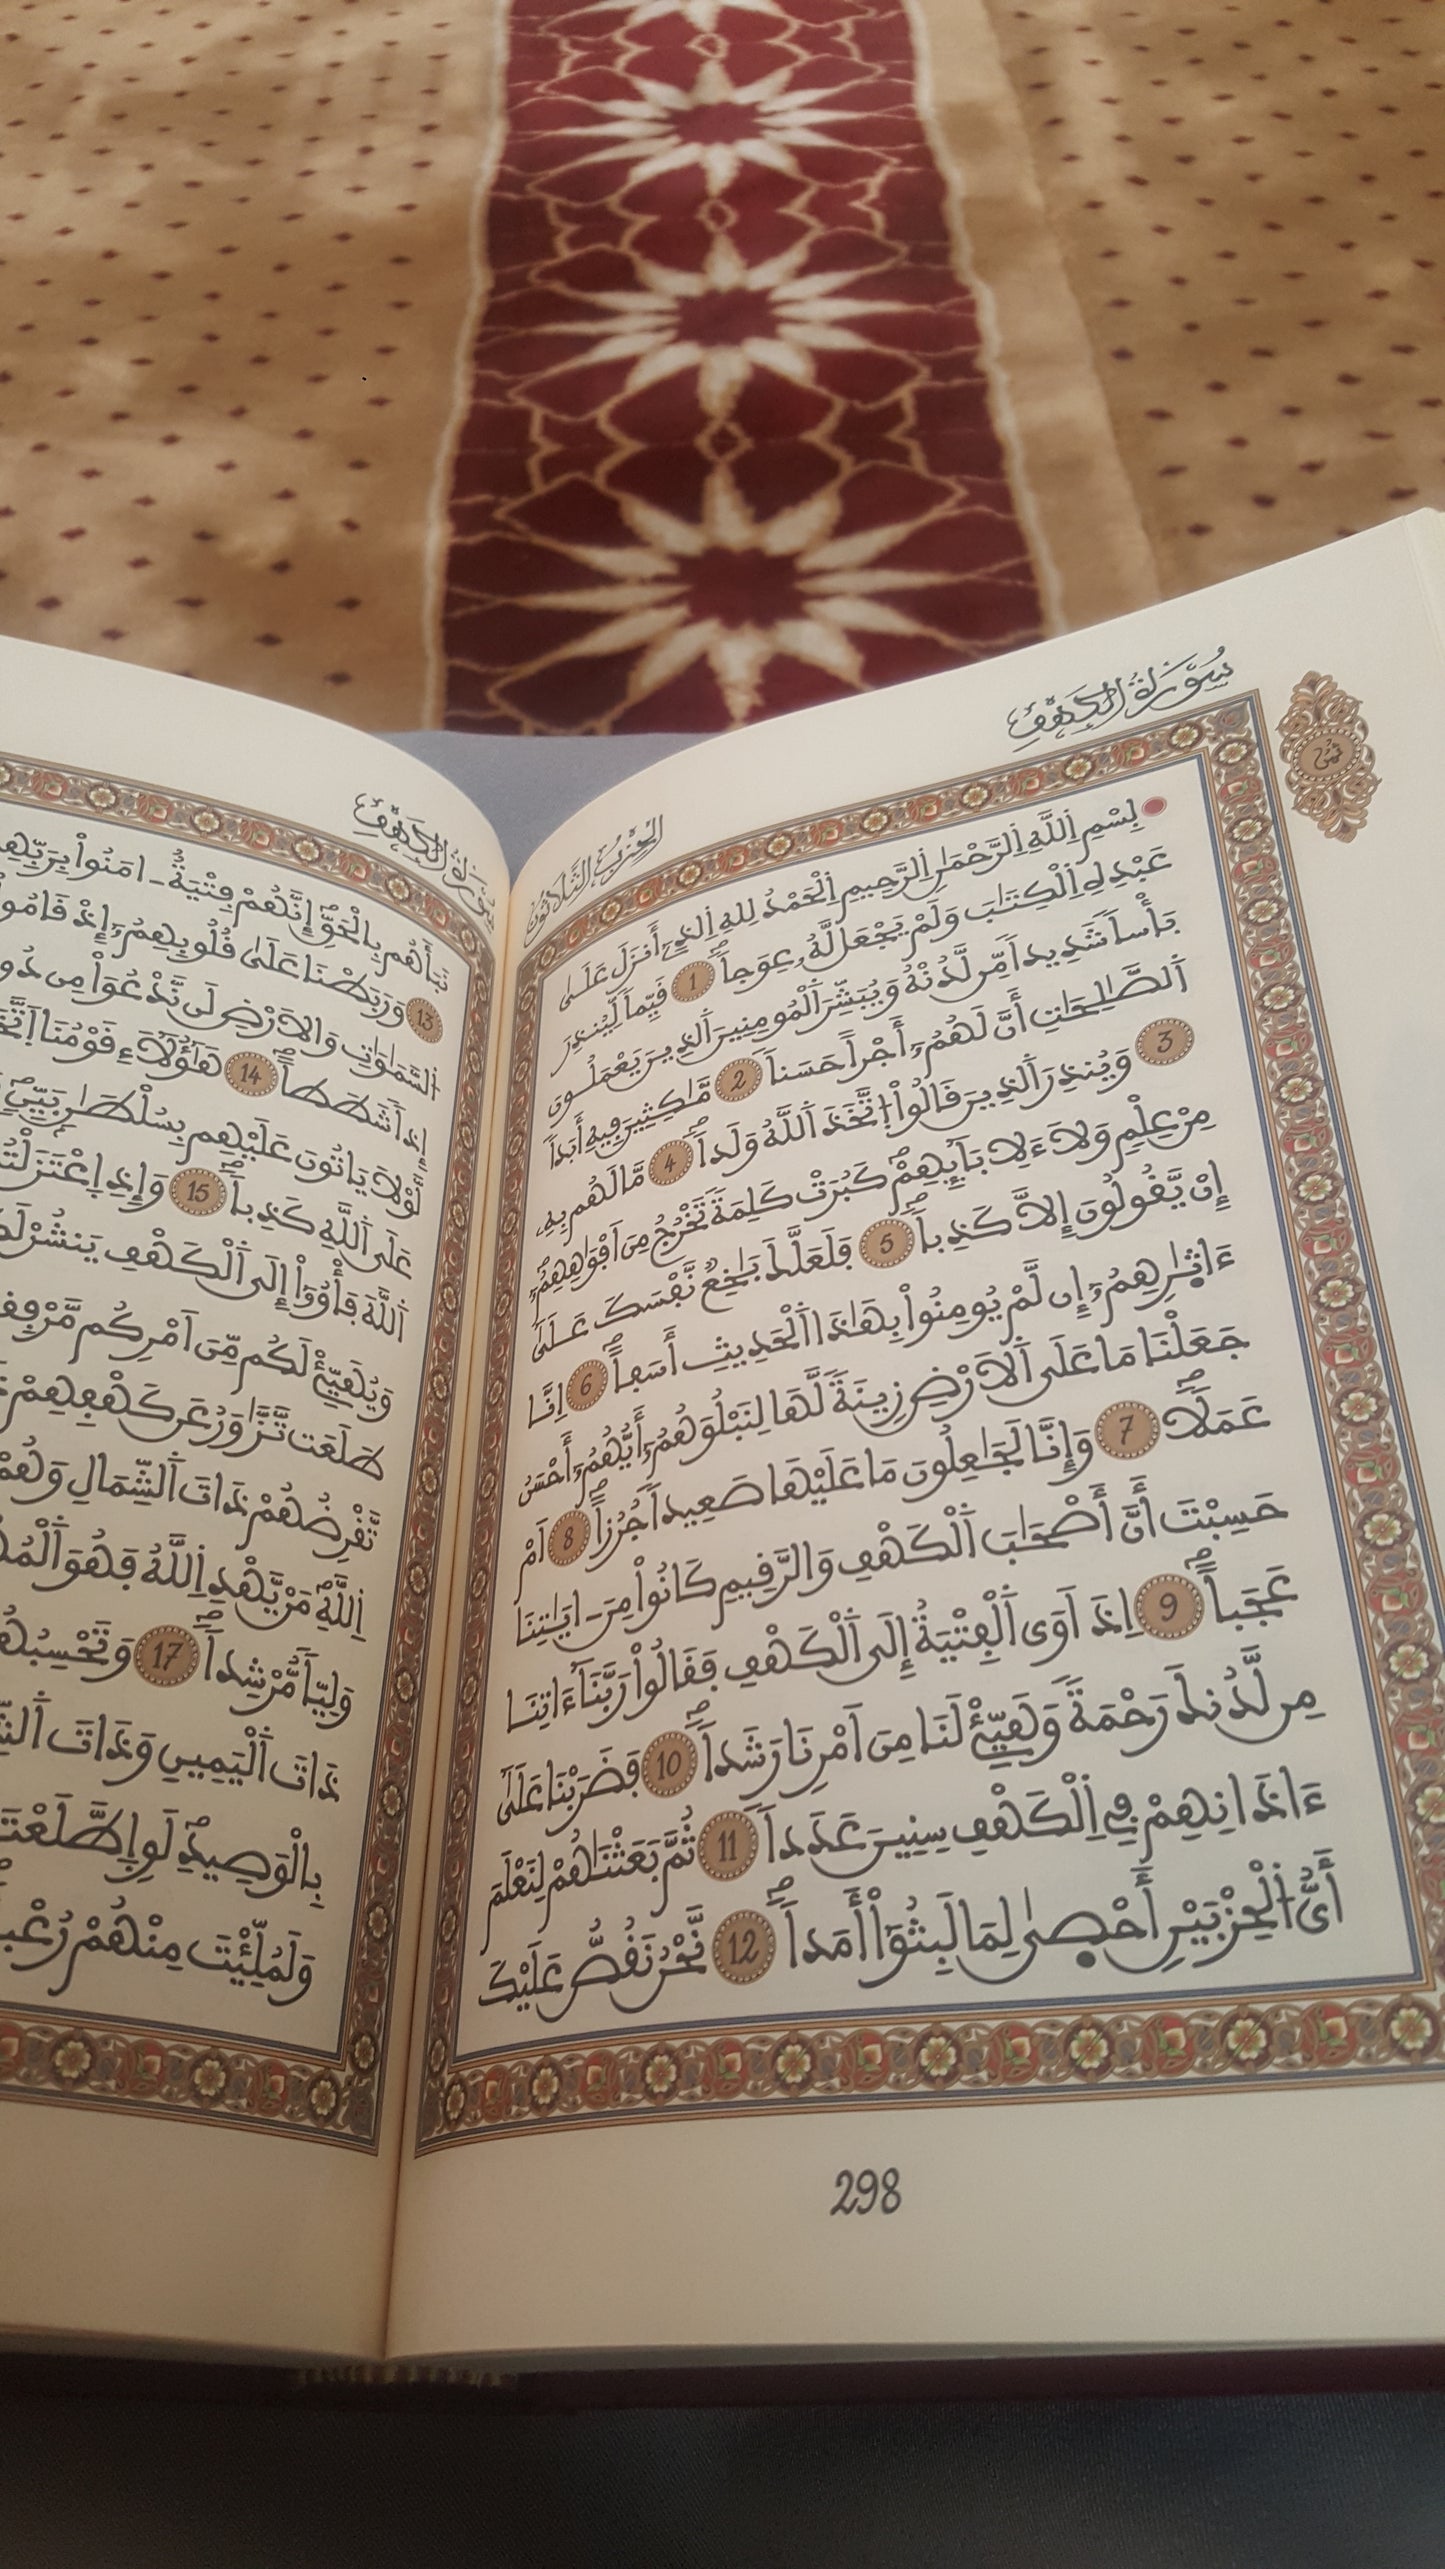 سُورَةُ الكَهْفِ
الحِزْبُ الثَّلَاثُونَ
ثُمُن
بِسْمِ اِللَّهِ اِلرَّحْمَٰنِ اِلرَّحِيمِ اِلْحَمْدُ لِلهِ اِلذِےٓ أَنزَلَ عَلَىٰ
عَبْدِهِ اِلْكِتَٰبَ وَلَمْ يَجْعَل لَّهُۥ عِوَجاًۖ 1 قَيِّماً لِّيُنذِرَ
بَأْساً شَدِيداً مِّن لَّدُنْهُ وَيُبَشِّرَ اَلْمُومِنِينَ اَلذِينَ يَعْمَلُونَ
اَلصَّٰلِحَٰتِ أَنَّ لَهُمُۥٓ أَجْراً حَسَناً 2 مَّٰكِثِينَ فِيهِ أَبَداً
3 وَيُنذِرَ اَلذِينَ قَالُواْ اُتَّخَذَ اَللَّهُ وَلَداًۖ 4 مَّا لَهُم بِهِۦ
مِنْ عِلْمٍ وَلَا ءَلِابَآئِهِمْۖ كَبُرَتْ كَلِمَةً تَخْرُجُ مِنَ اَفْوَٰهِهِمُۥٓۖ
إِنْ يَّقُولُونَ إِلَّا كَذِباًۖ 5 فَلَعَلَّكَ بَٰخِعٌ نَّفْسَكَ عَلَىٰٓ
ءَاثٰ۪رِهِمُۥٓ إِن لَّمْ يُومِنُواْ بِهَٰذَا اَلْحَدِيثِ أَسَفاًۖ 6 اِنَّا
جَعَلْنَا مَا عَلَى اَلَارْضِ زِينَةً لَّهَا لِنَبْلُوَهُمُۥٓ أَيُّهُمُۥٓ أَحْسَنُ
عَمَلاًۖ 7 وَإِنَّا لَجَٰعِلُونَ مَا عَلَيْهَا صَعِيداً جُرُزاًۖ 8 اَمْ
حَسِبْتَ أَنَّ أَصْحَٰبَ اَلْكَهْفِ وَالرَّقِيمِ كَانُواْ مِنَ اٰيَٰتِنَا
عَجَباًۖ 9 اِذَ اَوَى اَلْفِتْيَةُ إِلَى اَلْكَهْفِ فَقَالُواْ رَبَّنَآ ءَاتِنَا
مِن لَّدُنكَ رَحْمَةً وَهَيِّئْ لَنَا مِنَ اَمْرِنَا رَشَداًۖ 10 فَضَرَبْنَا عَلَىٰٓ
ءَاذَانِهِمْ فِے اِلْكَهْفِ سِنِينَ عَدَداً 11 ثُمَّ بَعَثْنَٰهُمْ لِنَعْلَمَ
أَيُّ اُلْحِزْبَيْنِ أَحْص۪ىٰ لِمَا لَبِثُوٓاْ أَمَداًۖ 12 نَّحْنُ نَقُصُّ عَلَيْكَ
298
سُورَةُ الكَهْفِ
نَبَأَهُم بِالْحَقِّۖ إِنَّهُمْ فِتْيَةٌ اٰمَنُواْ بِرَبِّهِمْ
13 وَرَبَطْنَا عَلَىٰ قُلُوبِهِمُۥٓ إِذْ قَامُواْ
اَلسَّمَٰوَٰتِ وَالَارْضِ لَن نَّدْعُوَاْ مِن دُو
إِذاً شَطَطاًۖ 14 هَٰٓؤُلَآءِ قَوْمُنَا اَتَّخَ
لَّوْلَا يَاتُونَ عَلَيْهِم بِسُلْطَٰنٍ بَيِّنٍۖ
عَلَى اَللَّهِ كَذِباًۖ 15 وَإِذِ اِعْتَزَلْتُ
اَللَّهَ فَأْوُۥٓاْ إِلَى اَلْكَهْفِ يَنشُرْ لَ
وَيُهَيِّئْ لَكُم مِّنَ اَمْرِكُم مَّرْفِق
طَلَعَت تَّزَّٰوَرُ عَن كَهْفِهِمْ
تَّقْرِضُهُمْ ذَاتَ اَلشِّمَالِ وَهُمْ
اِللَّهِۖ مَنْ يَّهْدِ اِللَّهُ فَهُوَ اَلْمُ
وَلِيّاً مُّرْشِداًۖ 17 وَتَحْسِبُهُ
ذَاتَ اَلْيَمِينِ وَذَاتَ اَلشِّ
بِالْوَصِيدِۖ لَوِ اِطَّلَعْتَ
وَلَمُلِّئْتَ مِنْهُمْ رُعْب